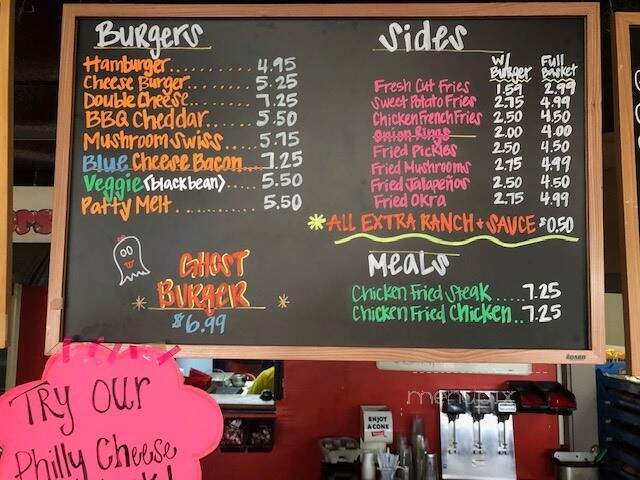 Burgers
Hamburger.......... 4.95
Cheese Burger....... 5.25
Double Cheese....... 7.25
BBQ Cheddar..... 5.50
Mushroom Swiss... 5.75
Blue Cheese Bacon... 7.25
Veggie (blackbean).... 5.50
Patty Melt............ 5.50
GHOST
BURGER
$6.99
Sides
w/ Burger Full Basket
Fresh Cut Fries 1.59 2.99
Sweet Potato Fries 2.75 4.99
Chicken French Fries 2.50 4.50
Onion Rings 2.00 4.00
Fried Pickles 2.50 4.50
Fried Mushrooms 2.75 4.99
Fried Jalapeños 2.50 4.50
Fried Okra 2.75 4.99
*ALL EXTRA RANCH + SAUCE $0.50
Meals
Chicken Fried Steak....7.25
Chicken Fried Chicken..7.25
TRY OUR
Philly Cheese
ENJOY
A CONE
menupix